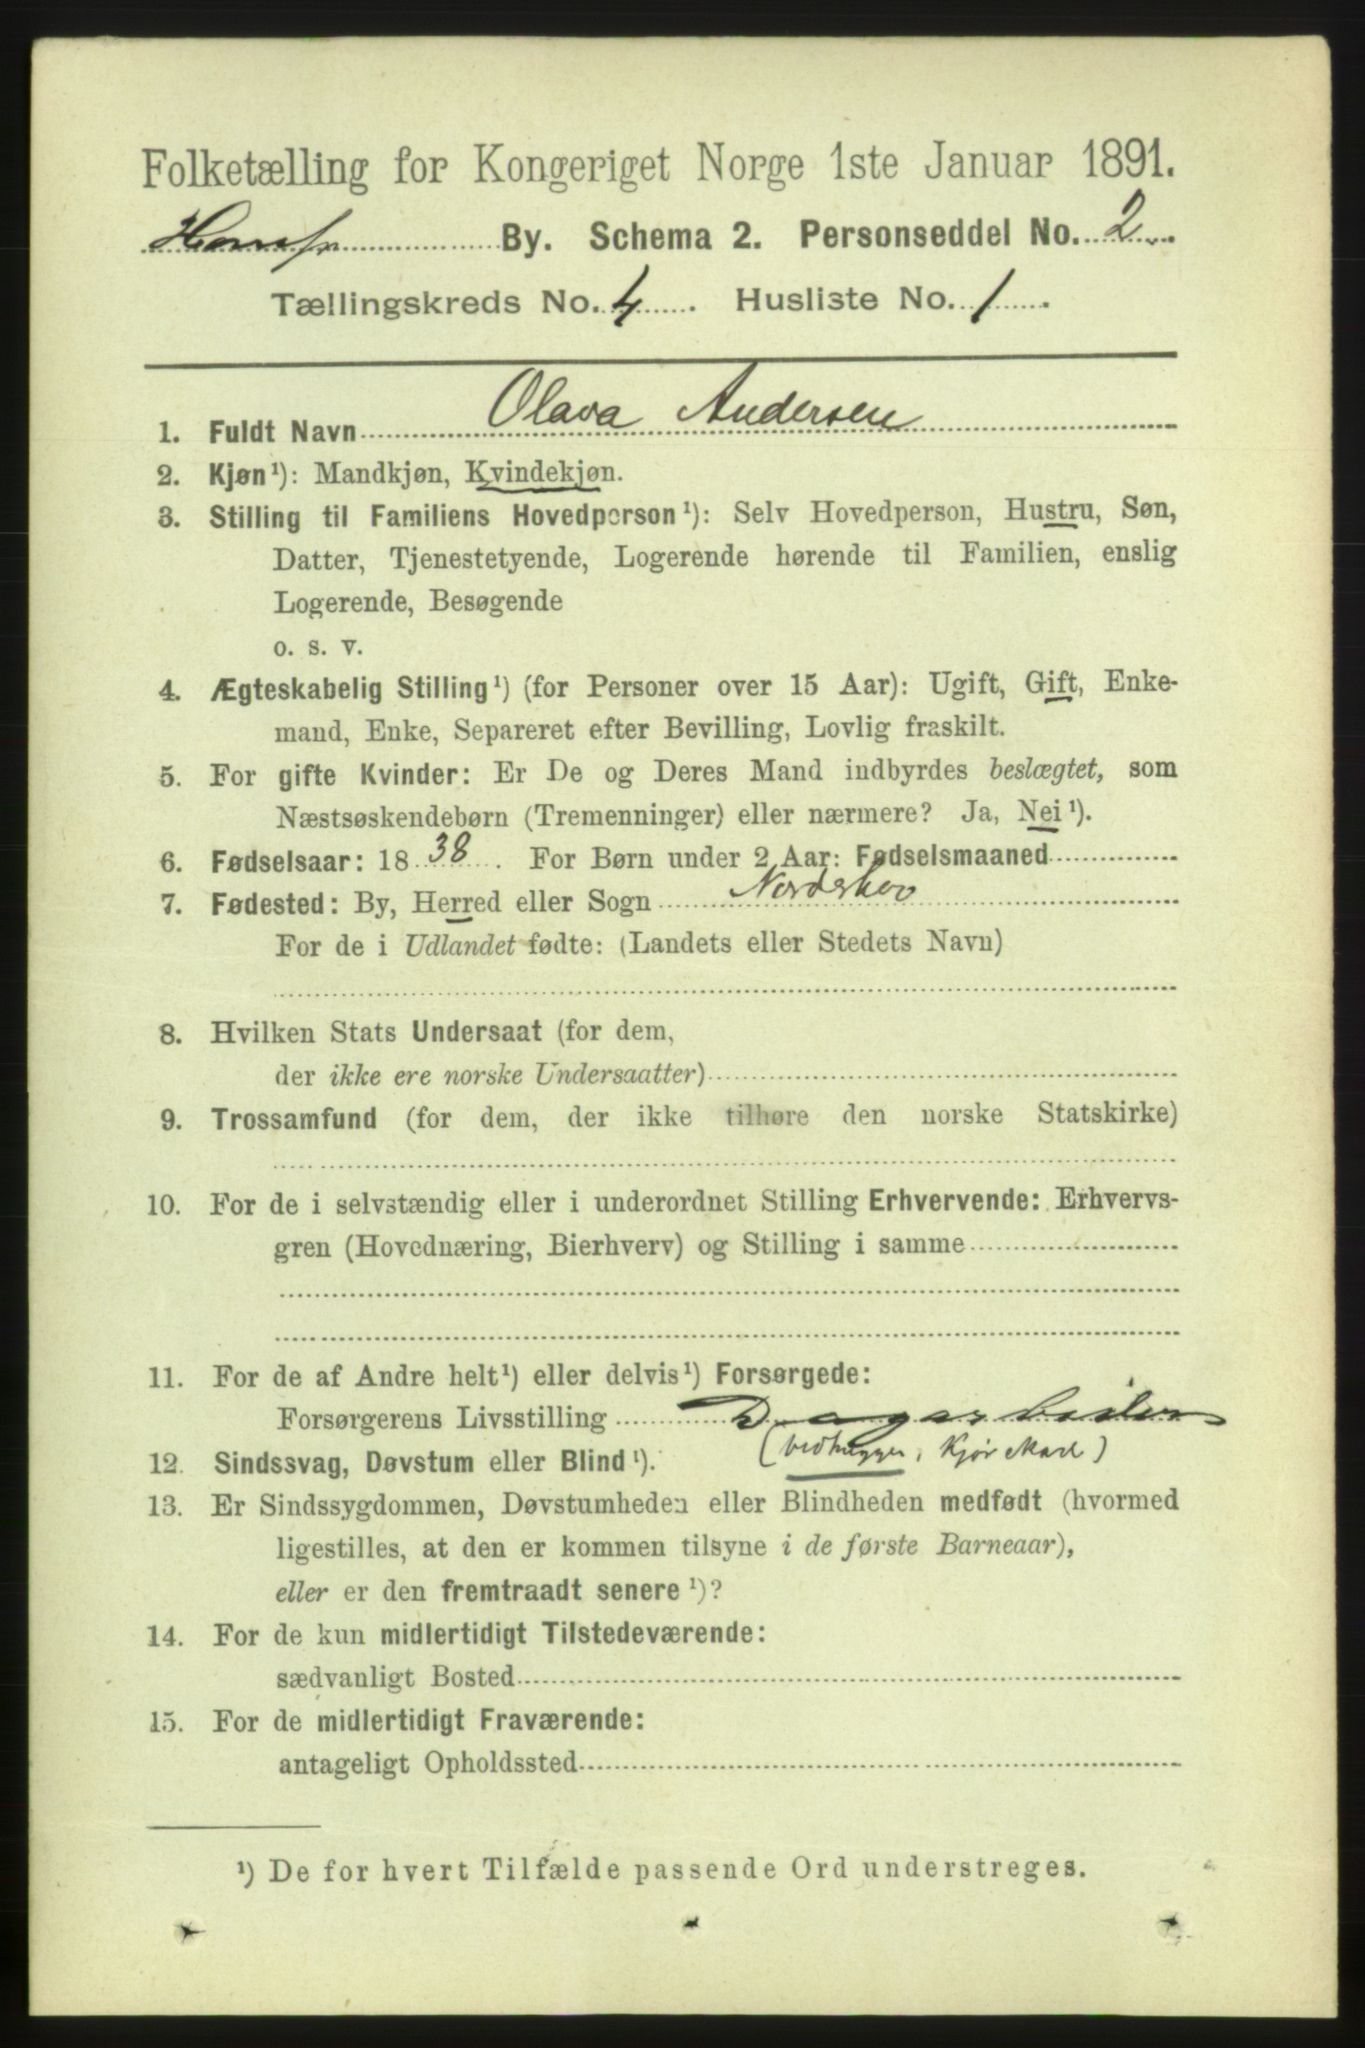 Folketælling for Kongeriget Norge 1ste Januar 1891.
Hønefos By. Schema 2. Personseddel No. 2
Tællingskreds No. 4. Husliste No. 1.
1. Fuldt Navn Olava Andersen
2. Kjøn¹): Mandkjøn, Kvindekjøn.
3. Stilling til Familiens Hovedperson¹): Selv Hovedperson, Hustru, Søn,
Datter, Tjenestetyende, Logerende hørende til Familien, enslig
Logerende, Besøgende
o. s. v.
4. Ægteskabelig Stilling¹) (for Personer over 15 Aar): Ugift, Gift, Enke-
mand, Enke, Separeret efter Bevilling, Lovlig fraskilt.
5. For gifte Kvinder: Er De og Deres Mand indbyrdes beslægtet, som
Næstsøskendebørn (Tremenninger) eller nærmere? Ja, Nei¹).
6. Fødselsaar: 1838. For Børn under 2 Aar: Fødselsmaaned
7. Fødested: By, Herred eller Sogn Norderhov
For de i Udlandet fødte: (Landets eller Stedets Navn)
8. Hvilken Stats Undersaat (for dem,
der ikke ere norske Undersaatter)
9. Trossamfund (for dem, der ikke tilhøre den norske Statskirke)
10. For de i selvstændig eller i underordnet Stilling Erhvervende: Erhvervs-
gren (Hovednæring, Bierhverv) og Stilling i samme
11. For de af Andre helt¹) eller delvis¹) Forsørgede:
Forsørgerens Livsstilling Dagarbeider
(vedhugger,
12. Sindssvag, Døvstum eller Blind¹).
13. Er Sindssygdommen, Døvstumheden eller Blindheden medfødt (hvormed
ligestilles, at den er kommen tilsyne i de første Barneaar),
eller er den fremtraadt senere¹)?
14. For de kun midlertidigt Tilstedeværende:
sædvanligt Bosted
15. For de midlertidigt Fraværende:
antageligt Opholdssted
¹) De for hvert Tilfælde passende Ord understreges.